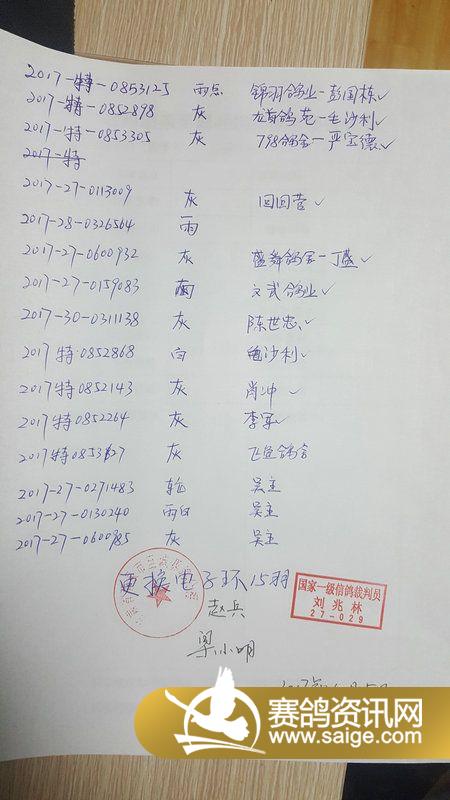 2017-特-0853125 雨点 锦羽鸽业-彭国栋✓
2017-特-0852898 灰 龙首鸽苑-毛沙利✓
2017-特-0853305 灰 798鸽舍-严宝德✓
2017-特
2017-27-0113009 灰 回回营✓
2017-28-0326564 雨
2017-27-0600932 灰 盛舞鸽舍-丁盛✓
2017-27-0159083 文武鸽业✓
2017-30-0311138 灰 陈世忠✓
2017特0852868 白 沙利✓
2017特0852143 灰 肖冲✓
2017特0852264 灰 李军✓
2017特0853127 灰 飞鱼鸽舍
2017-27-0271483 吴主
2017-27-0130240 雨白 吴主
2017-27-0600985 灰 吴主
更换电子环15羽
赵兵
梁小明
国家一级信鸽裁判员
刘兆林
27-029
赛鸽资讯网
www.saige.com